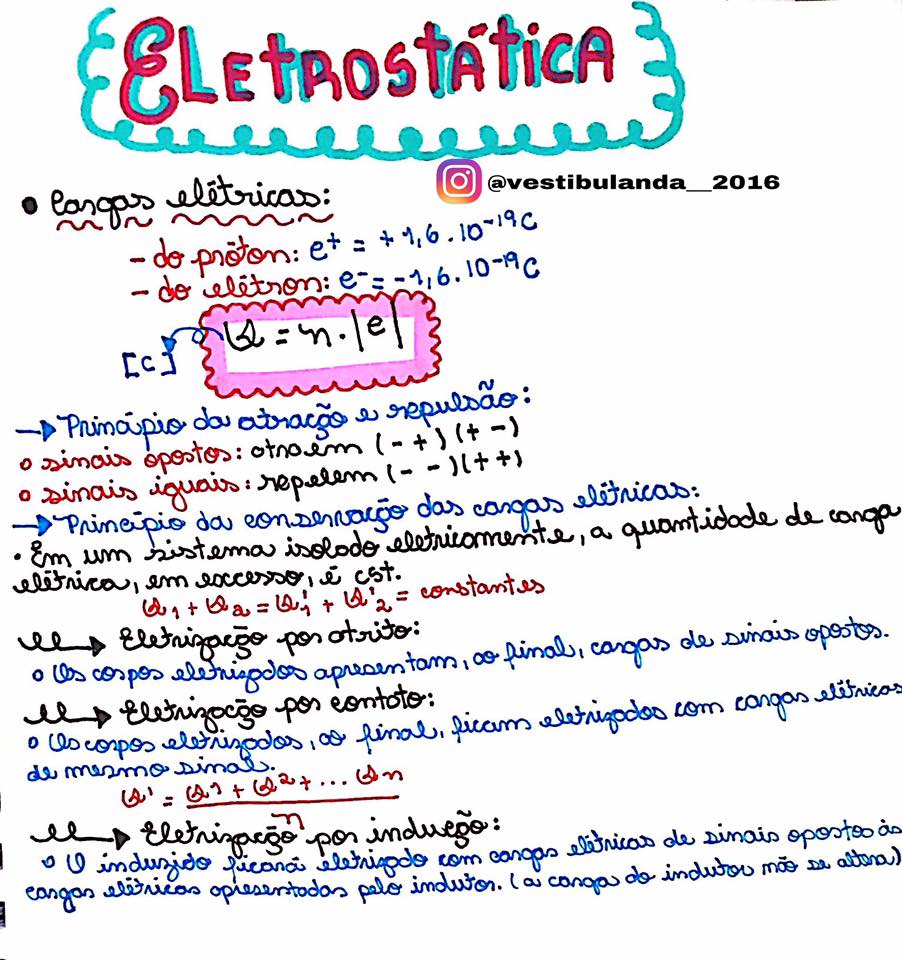 ELETROSTÁTICA
@vestibulanda__2016
• Cargas elétricas:
- do próton: e⁺ = + 1,6 . 10⁻¹⁹ C
- do elétron: e⁻ = -1,6 . 10⁻¹⁹ C
Q = n . |e|
[C]
→ Princípio da atração e repulsão:
o sinais opostos: atraem (- +) (+ -)
o sinais iguais: repelem (- -) (+ +)
→ Princípio da conservação das cargas elétricas:
• Em um sistema isolado eletricamente, a quantidade de carga
elétrica, em excesso, é cst.
Q₁ + Q₂ = Q'₁ + Q'₂ = constantes
→ Eletrização por atrito:
o Os corpos eletrizados apresentam, ao final, cargas de sinais opostos.
→ Eletrização por contato:
o Os corpos eletrizados, ao final, ficam eletrizados com cargas elétricas
de mesmo sinal.
Q' = Q¹ + Q² + ... Qn
n
→ Eletrização por indução:
o O induzido ficará eletrizado com cargas elétricas de sinais opostos às
cargas elétricas apresentadas pelo indutor. (a carga do indutor não se altera)